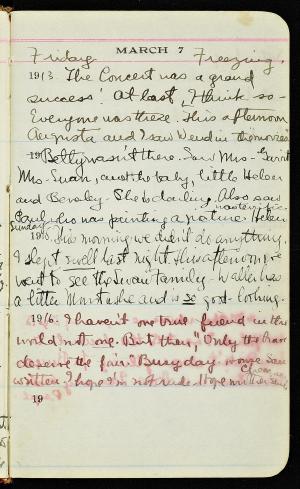 MARCH 7
Friday Freezing.
1913. The Concert was a grand
success! At least, I think so-
Everyone was there. This afternoon
Augusta and I saw Wend in the movies
19 Betty wasn't there. Saw Mrs.
Mrs. Swan, and the baby, little Helen
and Beverly - She is darling. Also saw
Paul who was painting a picture. Helen
Sunday
19 This morning we didn't do anything.
I slept swell last night. This afternoon we
went to see the Swan family - Walter has
a little Moustache and is so good-looking.
1916. I haven't one true friend in this
world not one. But then, "Only the brave
deserve the fair." Busy day
written. I hope I'm not rude. Hope
19